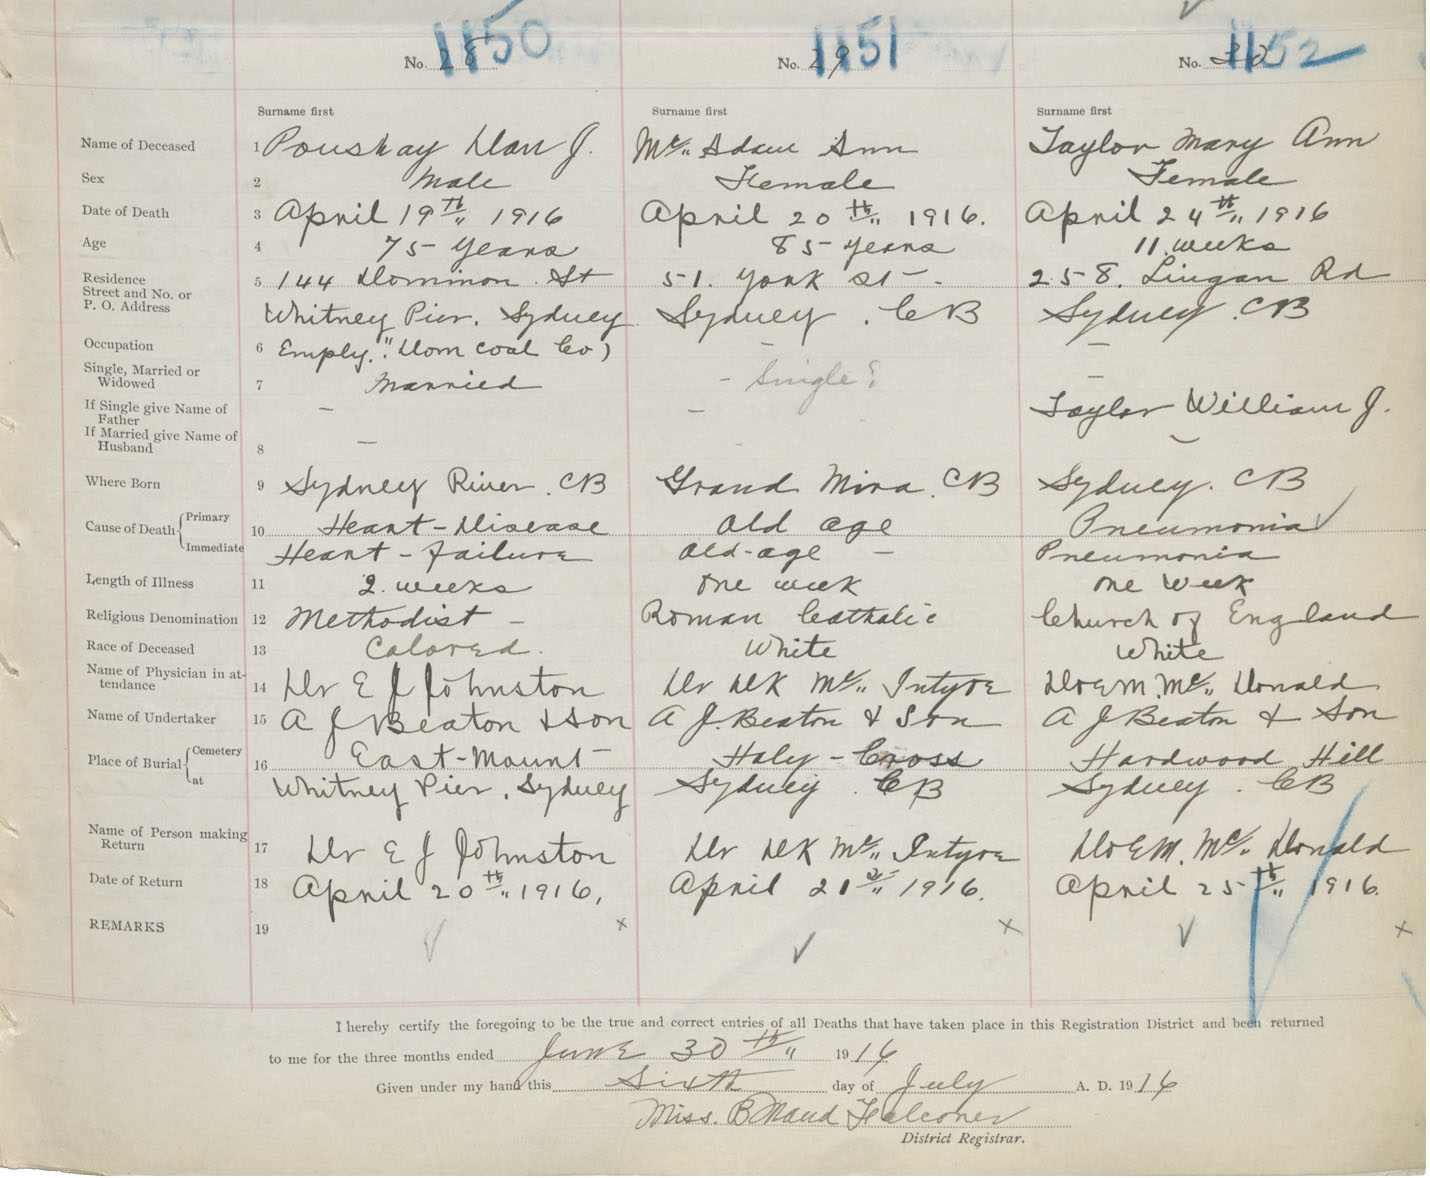 1150 1151 1152
No. 28 No. 29 No. 30
Surname first Surname first Surname first
Name of Deceased 1 Poushay Dan J. Mc,, Adam Ann Taylor Mary Ann
Sex 2 Male Female Female
Date of Death 3 April 19th,, 1916 April 20th,, 1916. April 24th,, 1916
Age 4 75 years 85 years 11 weeks
Residence 5 144 Dominion. St 51. York St - . 258. Lingan Rd
Street and No. or
P. O. Address Whitney Pier. Sydney Sydney . CB Sydney. CB
Occupation 6 Emply. "Dom Coal Co) - -
Single, Married or
Widowed 7 Married - Single? -
If Single give Name of
Father - - Taylor William J.
If Married give Name of
Husband 8 - - -
Where Born 9 Sydney River. CB Grand Mira. CB Sydney. CB
Cause of Death Primary 10 Heart - Disease Old age Pneumonia
Immediate Heart - Failure Old-age - Pneumonia
Length of Illness 11 2. weeks One week One week
Religious Denomination 12 Methodist - Roman Catholic Church of England
Race of Deceased 13 Colored. White White
Name of Physician in at-
tendance 14 Dr E J Johnston Dr DK Mc,, Intyre Dr EM. Mc,, Donald
Name of Undertaker 15 A J Beaton & Son A J. Beaton & Son A J Beaton & Son
Place of Burial Cemetery 16 East-Mount Holy - Cross Hardwood Hill
at Whitney Pier. Sydney Sydney . CB Sydney . CB
Name of Person making
Return 17 Dr E J Johnston Dr DK Mc,, Intyre Dr EM. Mc,, Donald
Date of Return 18 April 20th,, 1916, April 21st,, 1916. April 25th,, 1916.
REMARKS 19 x x x
I hereby certify the foregoing to be the true and correct entries of all Deaths that have taken place in this Registration District and been returned
to me for the three months ended June 30th,, 1916
Given under my hand this Sixth day of July A. D. 1916
Miss. B Maud Falconer
District Registrar.